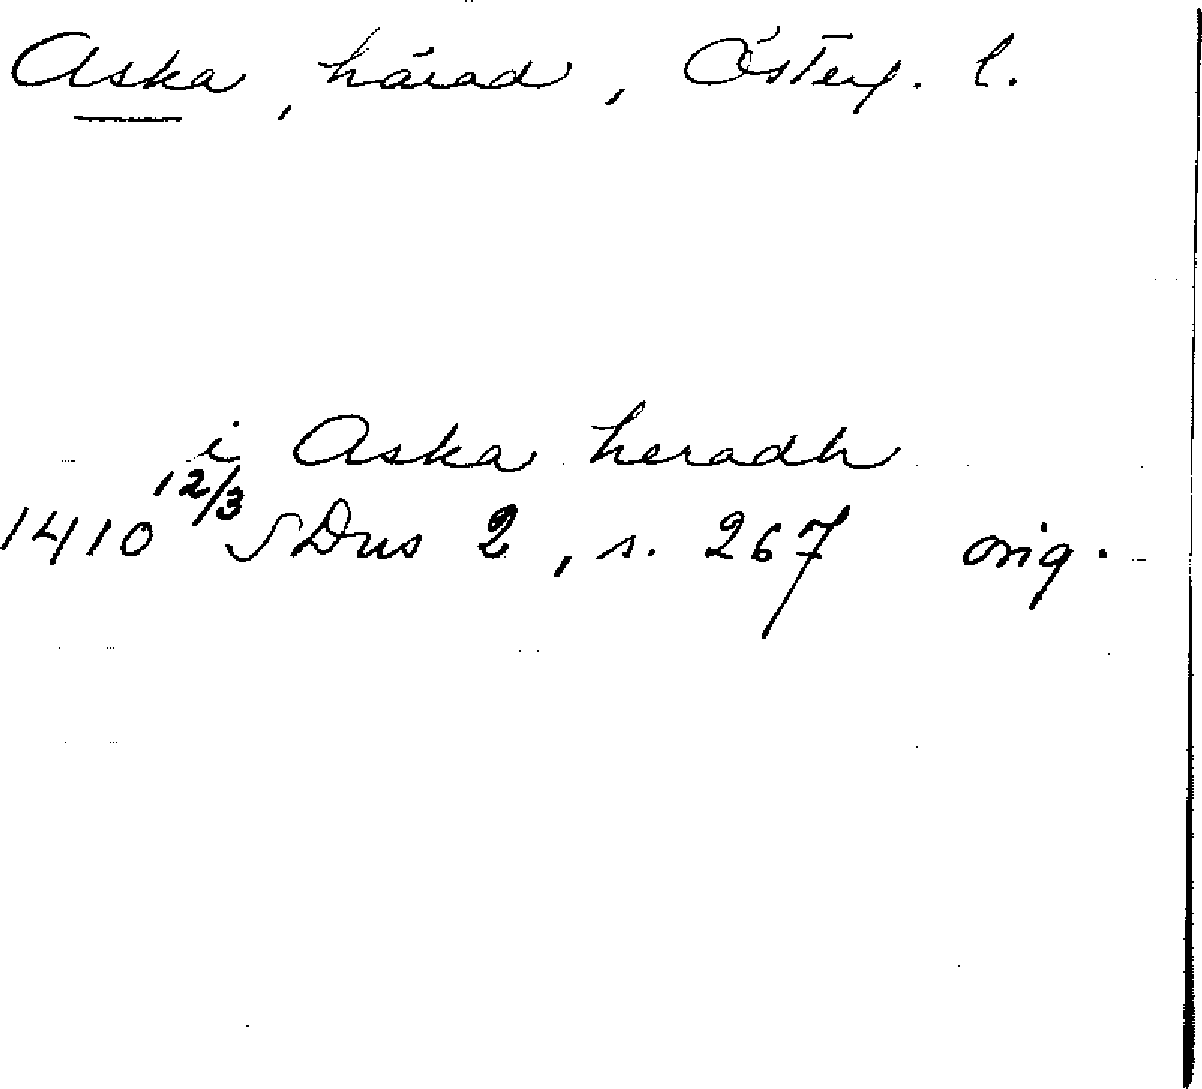 Aska, härad, Österg. l.
i Aska heradh
1410 12/3 SDns 2, s. 267 orig.